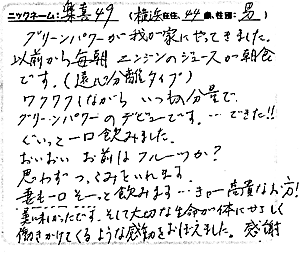 ニックネーム：楽喜49 （横浜在住、44歳、性別：男）
グリーンパワーが我が家にやってきました。
以前から毎朝エンジンのジュースが朝食
です。（遠心分離タイプ）
ワクワクしながらいつもの分量で、
グリーンパワーのデビューです。…できた!!
ぐいっと一口飲みました。
おいおいお前はフルーツか?
思わずつっこみをいれます。
妻も一口そーっと飲みます…きゃー高貴なお方!
美味しかったです。そして大切な生命が体にやさしく
働きかけてくるような感動をおぼえました。感謝